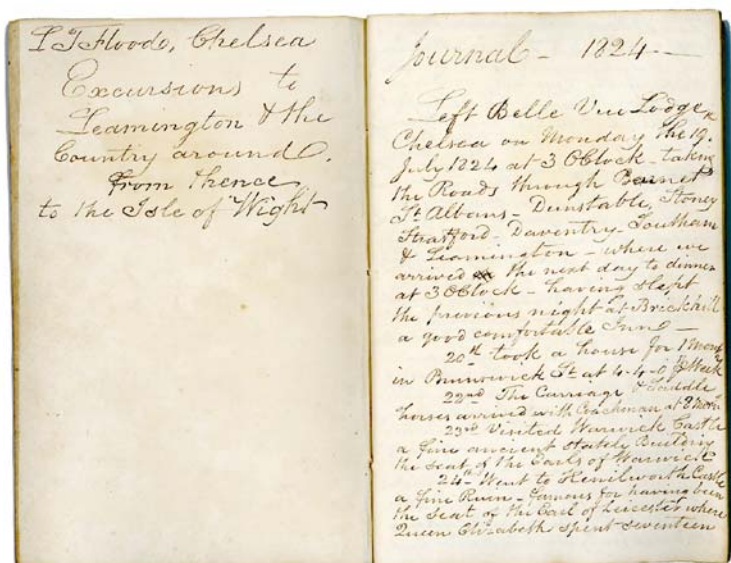 L T Flood, Chelsea
Excursions to
Leamington & the
Country around.
from thence
to the Isle of Wight
Journal - 1824 -
Left Belle Vue Lodge
Chelsea on Monday the 19
July 1824 at 3 OClock - taking
the Roads through Barnet
St Albans - Dunstable, Stoney
Stratford - Daventry - Southam
& Leamington - where we
arrived the next day to dinner
at 3 OClock - having slept
the previous night at Brickhill
a good comfortable Inn -
20th took a house for 1 Month
in Brunswick St at 4-4-0 Week
22nd The Carriage & Saddle
horses arrived with Coachman at 8 Morn
23rd Visited Warwick Castle
a fine ancient stately Building
the seat of the Earls of Warwick
24th Went to Kenilworth Castle
a fine Ruin - famous for having been
the seat of the Earl of Leicester where
Queen Elizabeth spent seventeen